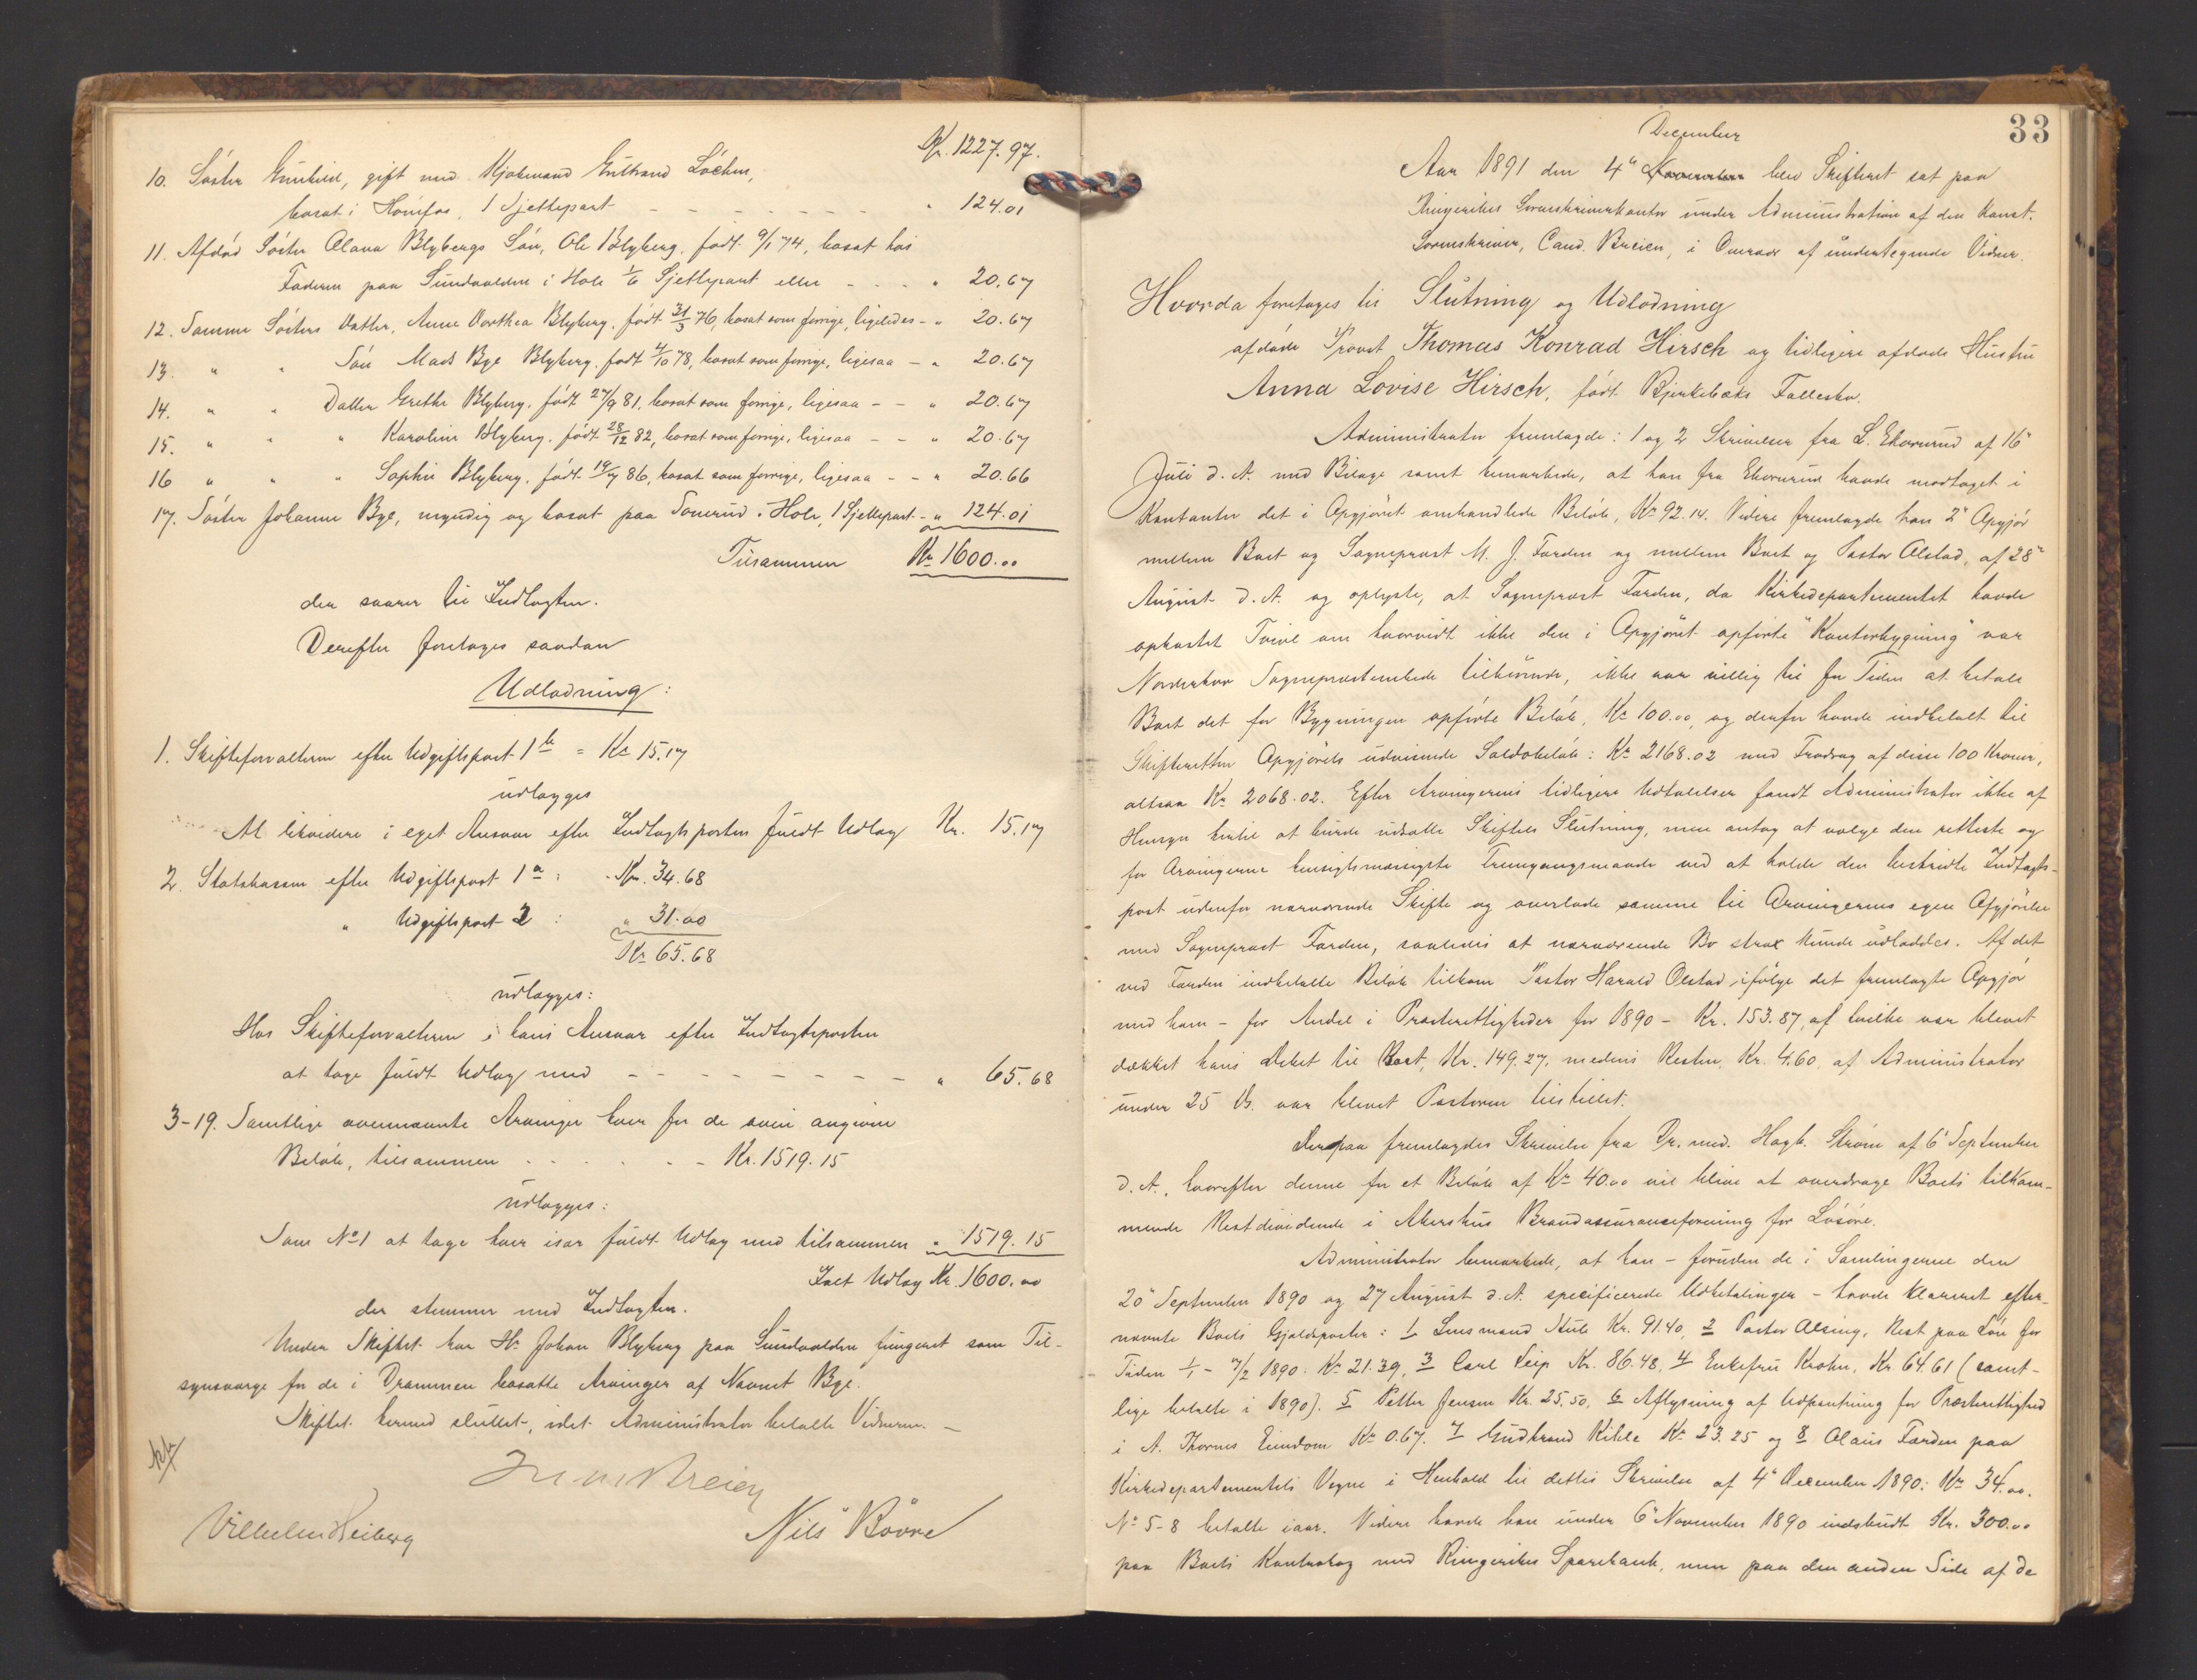 Kr. 1227.97.
10. Söster Gunhild, gift med Kjöbmand Gulbrand Löchen,
bosat i Hönefos, 1 Sjettepart - - - - - - - " 124.01
11. Afdöd Söster Olava Blybergs Sön, Ole Blyberg, født 9/1 74, bosat hos
Faderen paa Sundvolden i Hole 1/6 Sjettepart eller - - - - " 20.67
12. Samme Sösters Datter, Anne Dorthea Blyberg, födt 31/3 76, bosat som forrige, ligeledes - " 20.67
13. " " Sön Mads Bye Blyberg, født 4/10 78, bosat som forrige, ligesaa - " 20.67
14. " " Datter Grethe Blyberg, födt 27/9 81, bosat som forrige, ligesaa - - " 20.67
15. " " " Karoline Blyberg, födt 28/12 82, bosat som forrige, ligesaa - - " 20.67
16 " " " Sophie Blyberg, födt 19/7 86, bosat som forrige, ligesaa - - " 20.66
17. Söster Johanne Bye, myndig og bosat paa Sonerud i Hole, 1 Sjettepart - " 124.01
Tilsammen Kr 1600.00
der svarer til Indtægten.
Derefter foretoges saadan
Udlodning:
1. Skifteforvalteren efter Udgiftspost 1 b = Kr 15.17
udlægges
At likvidere i eget Ansvar efter Indtægtsposten fuldt Udlæg Kr. 15.17
2. Statskassen efter Udgiftspost 1 a : Kr. 34.68
" Udgiftspost 2 : " 31.00
Kr 65.68
udlægges:
Hos Skifteforvalteren i hans Ansvar efter Indtægtsposten
at tage fuldt Udlæg med - - - - - - - - - " 65.68
3-19. Samtlige ovennævnte Arvinger hver for de oven angivne
Beløb, tilsammen - - - - - - Kr. 1519.15
udlægges:
Som No 1 at tage hver især fuldt Udlæg med tilsammen " 1519.15
Ialt Udlæg Kr. 1600.00
der stemmer med Indtægten.
Under Skiftet har Hr Johan Blyberg paa Sundvolden fungeret som Til-
synsværge for de i Drammen bosatte Arvinger af Navnet Bye.
Skiftet hermed sluttet, idet Administrator betalte Vidnerne. -
Breien
Vilhelm Heiberg Nils Bövre
33
December
Aar 1891 den 4de November blev Skifteret sat paa
Ringerikes Sorenskriverkontor under Administration af den Konst.
Sorenskriver, Cand. Breien, i Overvær af undertegnede Vidner.
Hvorda foretoges til Slutning og Udlodning
afdøde Provst Thomas Konrad Hirsch og tidligere afdøde Hustru
Anna Lovise Hirsch, født Bjerkebæks Fællesbo.
Administrator fremlagde: 1 og 2 Skrivelser fra L. Ekornrud af 16de
Juli d. A. med Bilage samt bemærkede, at han fra Ekornrud havde modtaget i
Kontanter det i Opgjöret omhandlede Belöb, Kr 92.14. Videre fremlagde han 2de Opgjör
mellem Boet og Sogneprest M. J. Færden og mellem Boet og Pastor Olstad, af 28de
August d. A. og oplyste, at Sogneprest Færden, da Kirkedepartementet havde
opkastet Tvivl om hvorvidt ikke den i Opgjöret opförte "Kontorbygning" var
Norderhov Sogneprestembede tilhörende, ikke var villig til for Tiden at betale
Boet det for Bygningen opförte Belöb, Kr 100.00, og derfor havde indbetalt til
Skifteretten Opgjörets udvisende Saldobelöb: Kr 2168.02 med Fradrag af disse 100 Kroner,
altsaa Kr 2068.02. Efter Arvingernes tidligere Udtalelser fandt Administrator ikke af
Hensyn hertil at burde udsætte Skiftets Slutning, men antog at vælge den retteste og
for Arvingerne hensigtsmæssigste Fremgangsmaade ved at holde den bestridte Indtægts-
post udenfor nærværende Skifte og overlade samme til Arvingernes egen Afgjörelse
med Sogneprest Færden, saaledes at nærværende Bo strax kunde udloddes. Af det
ved Færden indbetalte Belöb tilkom Pastor Harald Olstad, ifölge det fremlagte Opgjör
med ham - for Andel i Presterettigheder for 1890 - Kr. 153.87, af hvilke var blevet
dækket hans Debet til Boet, Kr. 149.27, medens Resten, Kr. 4.60, af Administrator
under 25 ds. var blevet Pastoren tilstillet.
Derpaa fremlagdes Skrivelse fra Dr. med. Hagb. Ström af 6te September
d. A., hvorefter denne for et Belöb af Kr 40.00 vil blive at overdrage Boets tilkom-
mende Restdividende i Akershus Brandassuranceforening for Lösöre.
Administrator bemærkede, at han - foruden de i Samlingerne den
20de September 1890 og 27 August d. A. specificerede Udbetalinger - havde klareret efter-
nævnte Boets Gjældsposter: 1 Lensmand Hule Kr. 91.40, 2 Pastor Alsing, Rest paa Lön for
Tiden 1/1 - 7/2 1890. Kr 21.39, 3 Carl Seip Kr. 86.48, 4 Enkefru Krohn, Kr 64.61 (samt-
lige betalte i 1890). 5 Petter Jensen Kr. 25.50, 6 Aflysning af Udpantning for Presterettighed
i A. Thornes Eiendom Kr 0.67. 7 Gudbrand Kihle Kr 23.25 og 8 Olaus Færden paa
Kirkedepartementets Vegne i Henhold til dettes Skrivelse af 4de December 1890: Kr 34.00.
No 5-8 betalte iaar. Videre havde han under 6te November 1890 indskudt Kr. 300.00
paa Boets Kontrabog med Ringerikes Sparebank, men paa den anden Side af de